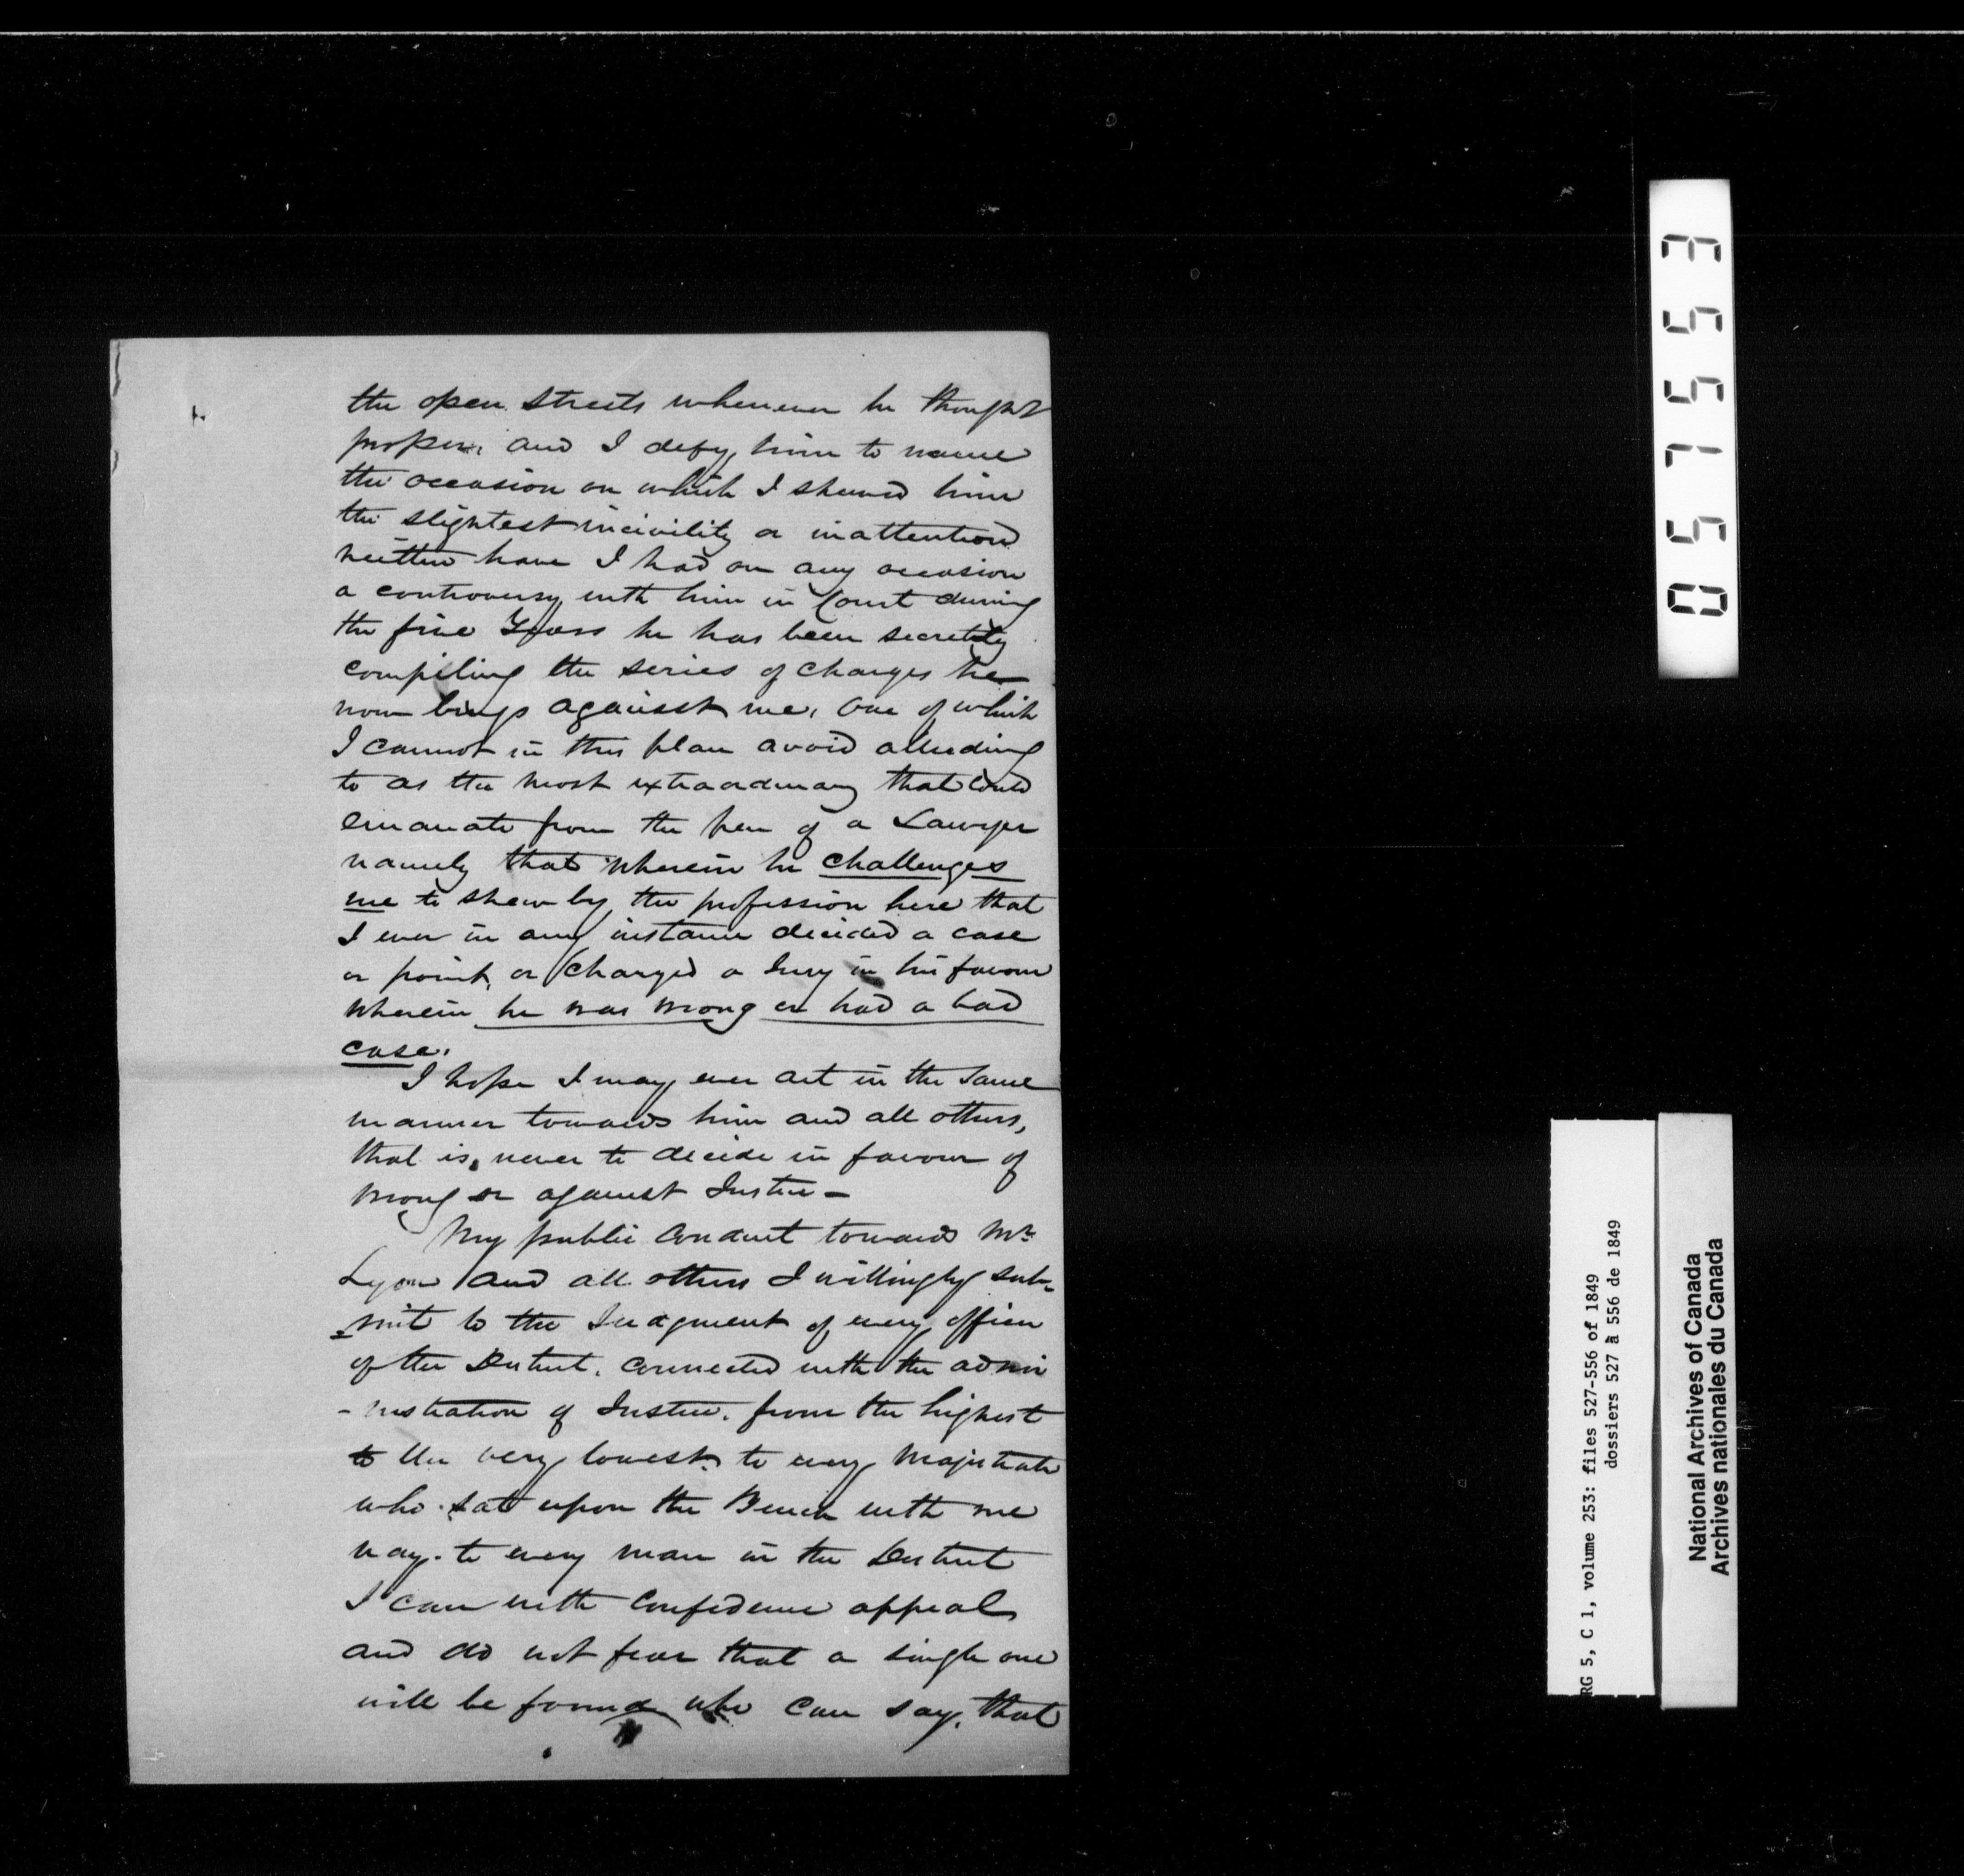 the open streets whenever he thought
proper. and I defy him to name
the occasion on which I shewed him
the slightest incivility or inattention
neither have I had on any occasion
a controversy with him in Court during
the five Years he has been secretly
compiling the series of charges he
now brings against me, one of which
I cannot in this place avoid alluding
to as the most extraordinary that could
emanate from the pen of a Lawyer
namely that wherein he challenges
me to shew by the profession here that
I ever in any instance decided a case
or point, or charged a Jury in his favour
wherein he was wrong or had a bad
case.
I hope I may ever act in the same
manner towards him and all others,
that is, never to decide in favour of
wrong or against Justice -
My public conduct towards Mr
Lyon and all others I willingly sub-
=mit to the Judgment of every officer
of the District. connected with the admi
- nistration of Justice. from the highest
to the very lowest. to every Magistrate
who sat upon the Bench with me
nay. to every man in the District
I can with confidence appeal
and do not fear that a single one
will be found who can say. that
057553
RG 5, C 1, volume 253: files 527-556 of 1849
dossiers 527 à 556 de 1849
National Archives of Canada
Archives nationales du Canada